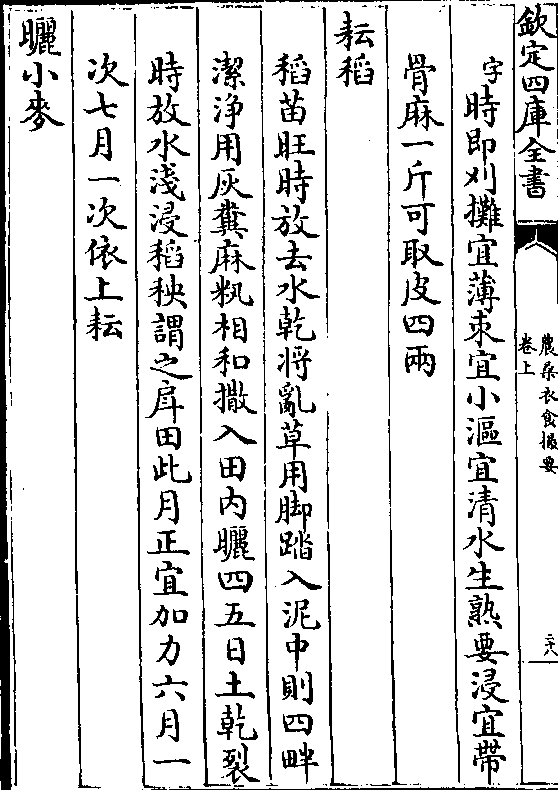 欽定四庫全書
農桑衣食撮要
卷上
二八
字時即刈攤宜薄束宜小漚宜清水生熟要浸宜帶
骨麻一斤可取皮四兩
耘稻
稻苗旺時放去水乾將亂草用脚踏入泥中則四畔
潔浄用灰糞麻籸相和撒入田内曬四五日土乾裂
時放水淺浸稻秧謂之戽田此月正宜加力六月一
次七月一次依上耘
曬小麥